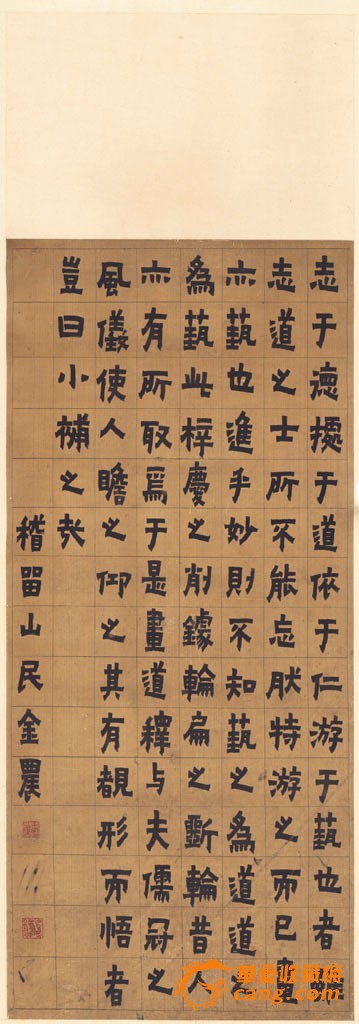 志于德據于道依于仁游于藝也者雖
志道之士所不能忘肰特游之而已畫
亦藝也進乎妙則不知藝之為道道之
為藝此梓慶之削鐻輪扁之斲輪昔人
亦有所取焉于是畫道釋与夫儒冠之
風儀使人瞻之仰之其有覩形而悟者
豈曰小補之哉
稽留山民金農
收藏網
cang.com